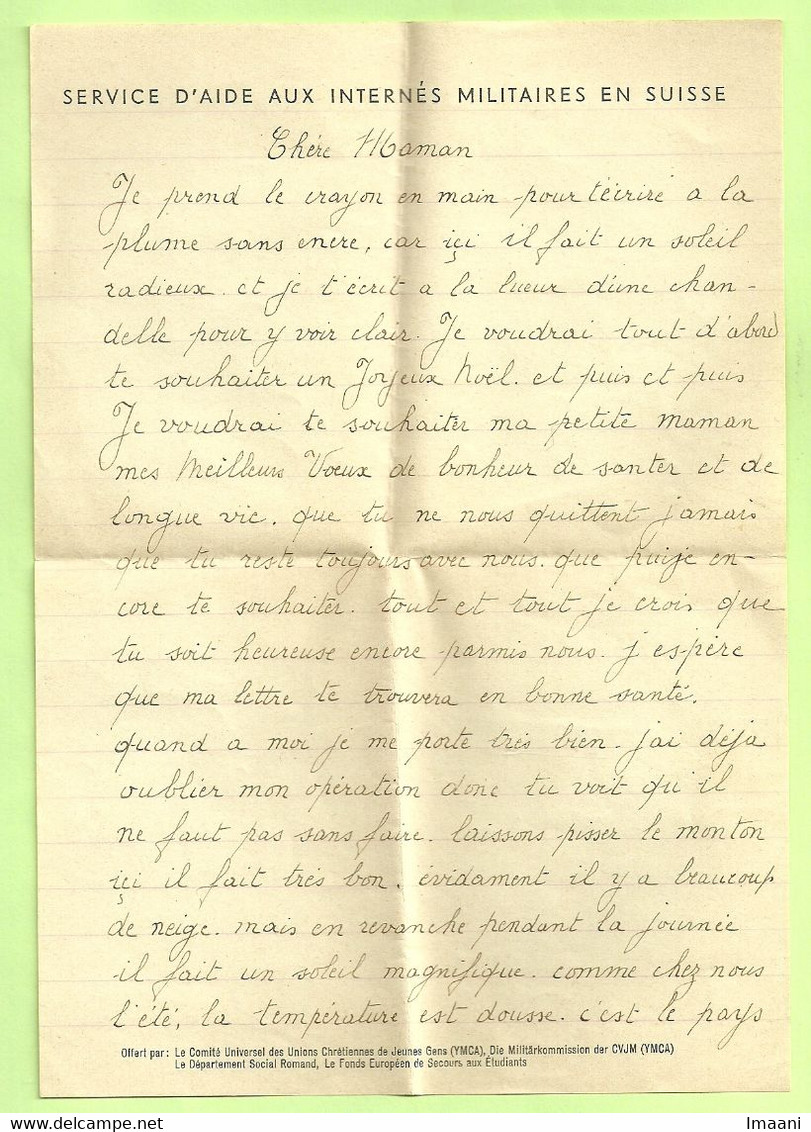 SERVICE D'AIDE AUX INTERNÉS MILITAIRES EN SUISSE
Chére Maman
Je prend le crayon en main pour t'écrire a la
plume sans encre, car içi il fait un soleil
radieux. et je t'écrit a la lueur d'une chan-
delle pour y voir clair. Je voudrai tout d'abord
te souhaiter un Joyeux Noël. et puis et puis
Je voudrai te souhaiter ma petite maman
mes Meilleurs Voeux de bonheur de santer et de
longue vie. que tu ne nous quittent jamais
que tu reste toujours avec nous. que puije en-
core te souhaiter. tout et tout je crois que
tu soit heureuse encore parmis nous. j'espère
que ma lettre te trouvera en bonne santé.
quand a moi je me porte trés bien. j'ai déja
oublier mon opération donc tu voit qu'il
ne faut pas sans faire. laissons pisser le mouton
içi il fait trés bon. évidament il y a beaucoup
de neige. mais en revanche pendant la journée
il fait un soleil magnifique. comme chez nous
l'été, la température est dousse. c'est le pays
Offert par: Le Comité Universel des Unions Chrétiennes de Jeunes Gens (YMCA), Die Militärkommission der CVJM (YMCA)
Le Département Social Romand, Le Fonds Européen de Secours aux Étudiants
Imaani